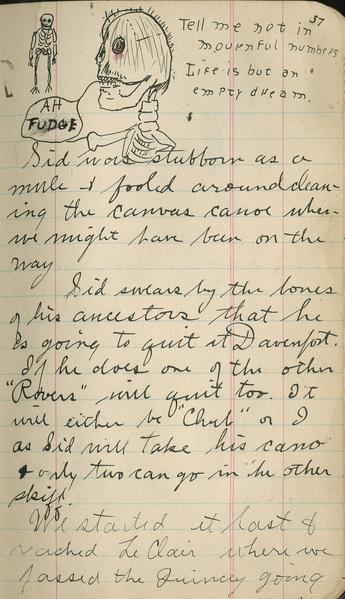 57
Tell me not in
mournful numbers
Life is but an
empty dream.
AH
FUDGE
Sid was stubborn as a
mule & fooled around clean-
ing the canvas canoe when
we might have been on the
way
Sid swears by the bones
of his ancestors that he
is going to quit it Davenport.
If he does one of the other
"Rovers" will quit too. It
will either be "Chub" or I
as Sid will take his cano
& only two can go in the other
skiff.
We started at last &
reached Le Clair where we
passed the Quincey going